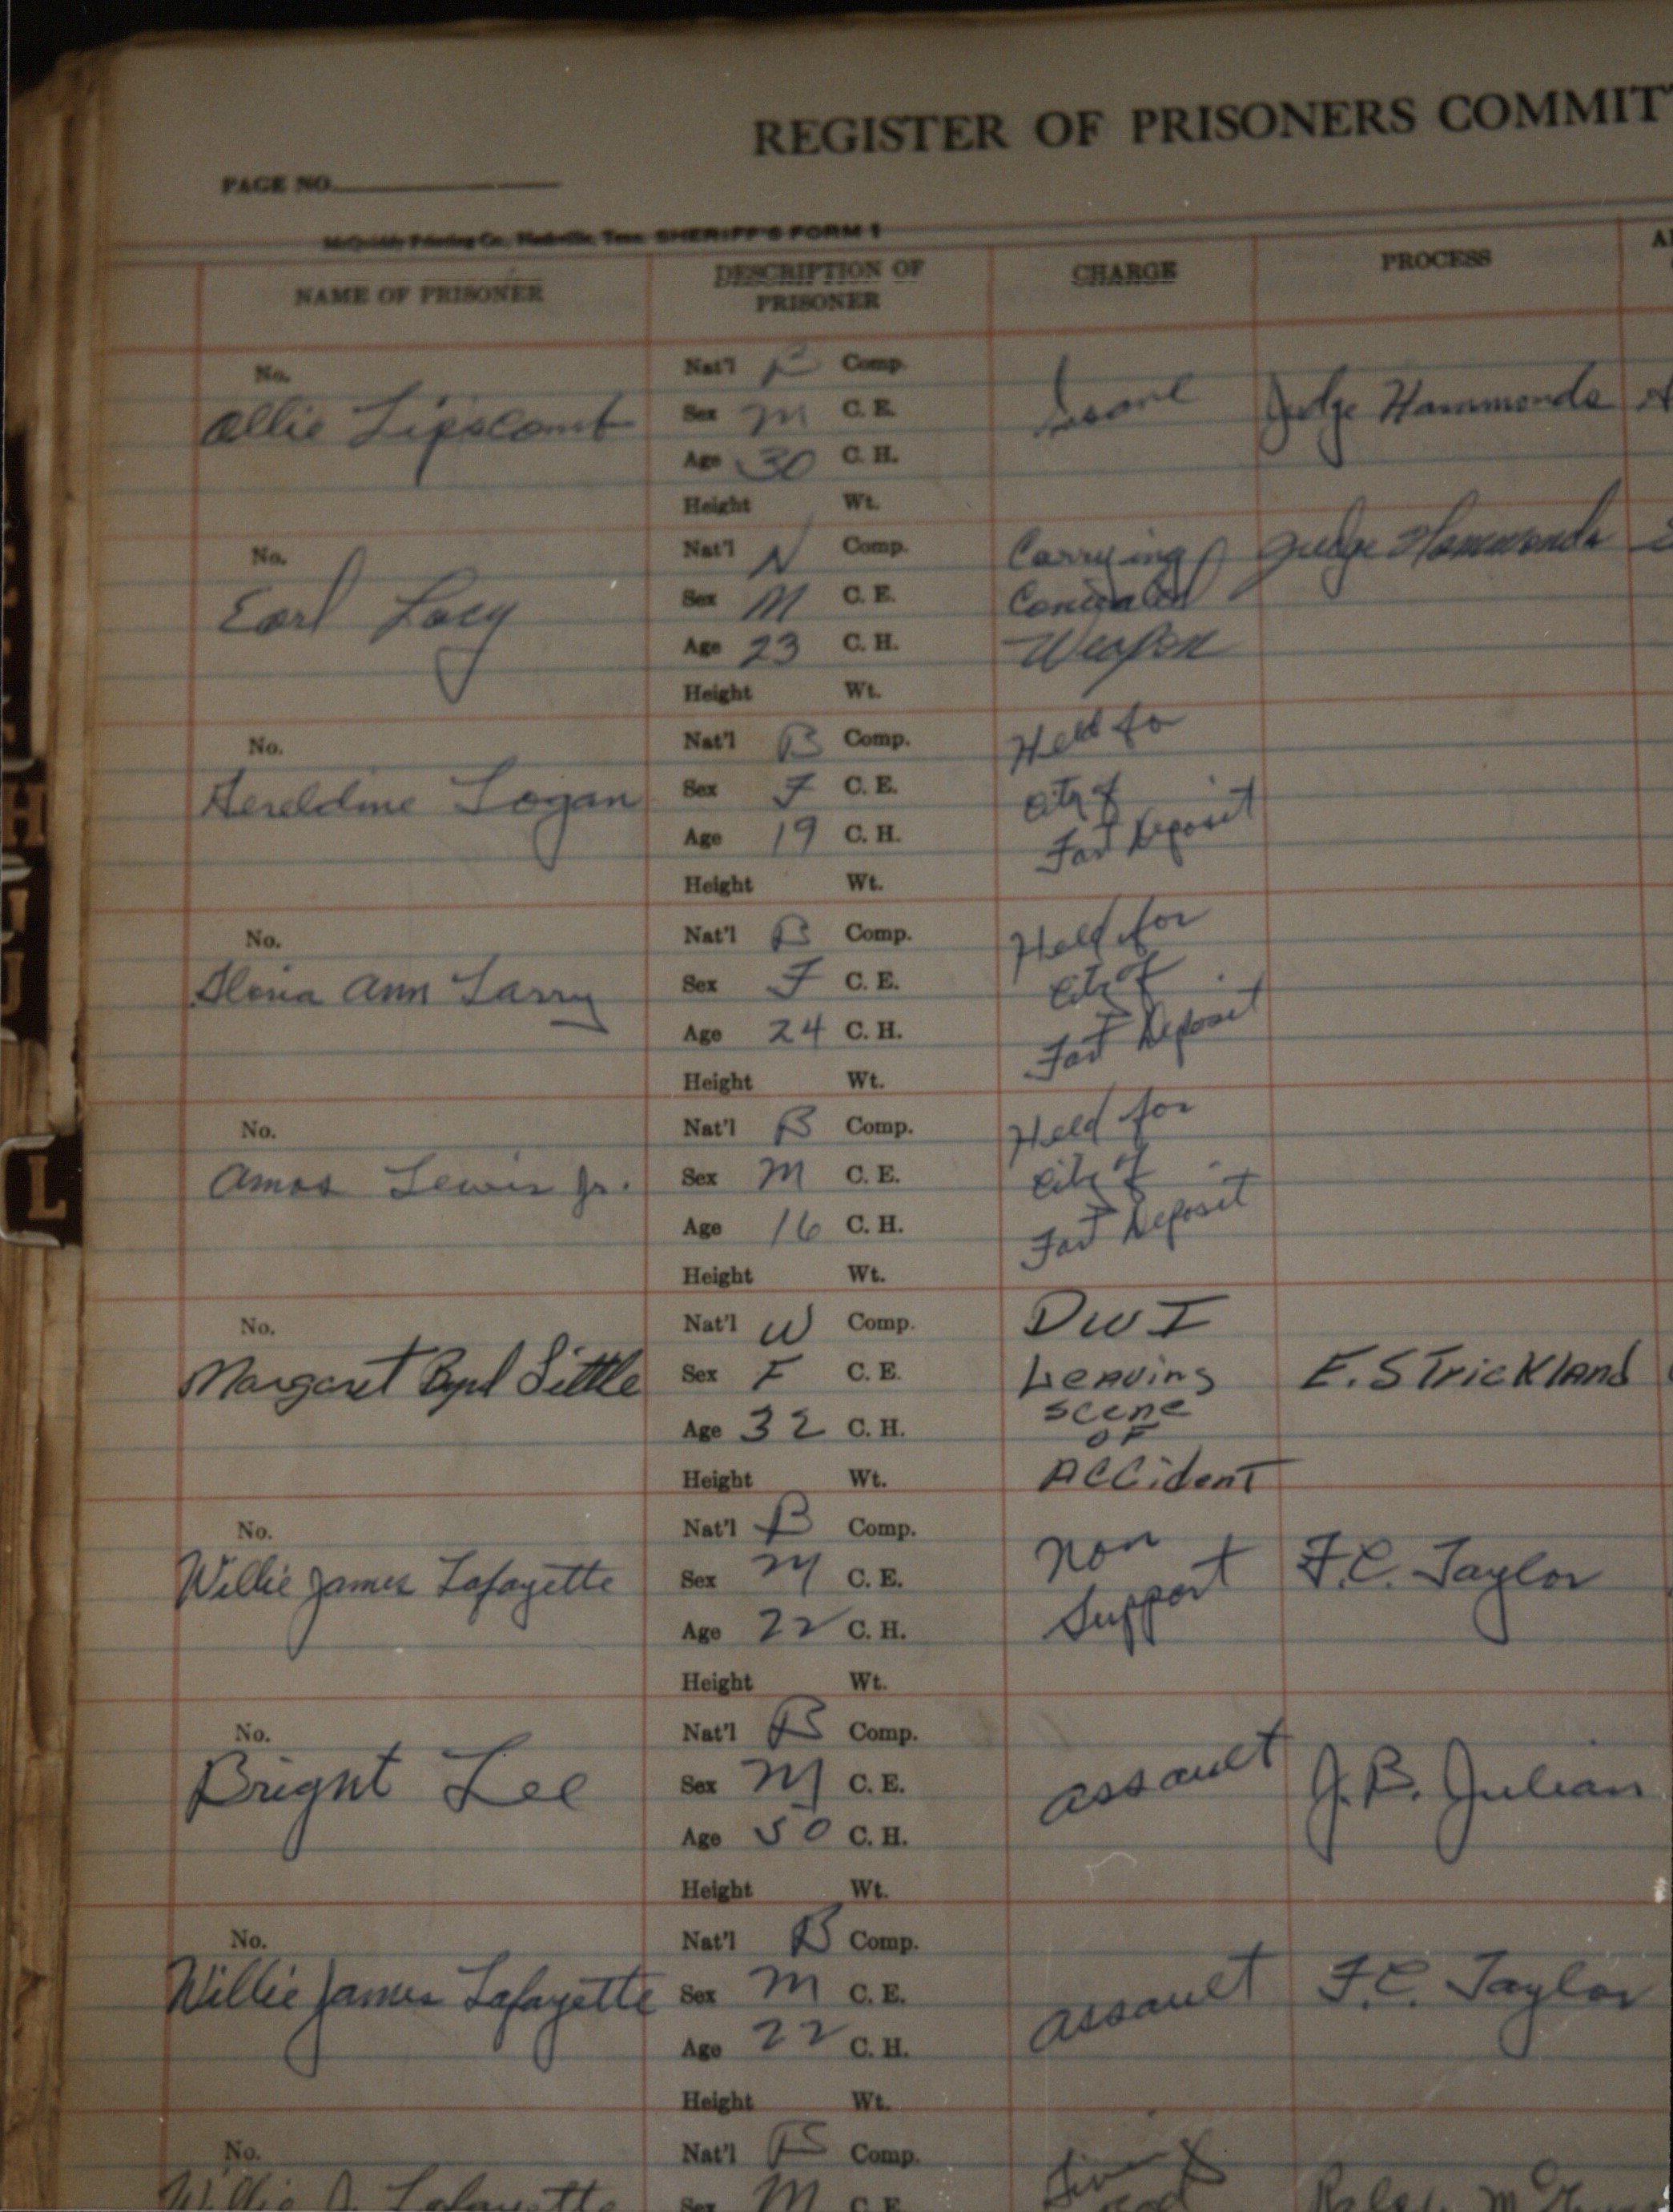 REGISTER OF PRISONERS COMMIT
PAGE NO.
McQuiddy Printing Co., Nashville, Tenn. SHERIFF'S FORM 1
NAME OF PRISONER
DESCRIPTION OF
PRISONER
CHARGE
PROCESS
No.
Ollie Lipscomb
Nat'l B Comp.
Sex M C. E.
Age 30 C. H.
Height Wt.
Judge Hammonds
No.
Earl Lacy
Nat'l N Comp.
Sex M C. E.
Age 23 C. H.
Height Wt.
Carrying
Concealed
Weapon
Judge Hammonds
No.
Gereldine Logan
Nat'l B Comp.
Sex F C. E.
Age 19 C. H.
Height Wt.
Held fo
City of
Fort Deposit
No.
Gloria Ann Larry
Nat'l B Comp.
Sex F C. E.
Age 24 C. H.
Height Wt.
Held for
City of
Fort Deposit
L
No.
Amos Lewis Jr.
Nat'l B Comp.
Sex M C. E.
Age 16 C. H.
Height Wt.
Held for
City of
Fort Deposit
No.
Margaret Byrd Little
Nat'l W Comp.
Sex F C. E.
Age 32 C. H.
Height Wt.
DWI
Leaving
scene
OF
Accident
E. Strickland
No.
Willie James Lafayette
Nat'l B Comp.
Sex M C. E.
Age 22 C. H.
Height Wt.
Non
Support
F.C. Taylor
No.
Bright Lee
Nat'l B Comp.
Sex M C. E.
Age 50 C. H.
Height Wt.
assault
J.B. Julian
No.
Willie James Lafayette
Nat'l B Comp.
Sex M C. E.
Age 22 C. H.
Height Wt.
assault
F.C. Taylor
No.
Willie J. Lafayette
Nat'l B Comp.
Sex M C. E.